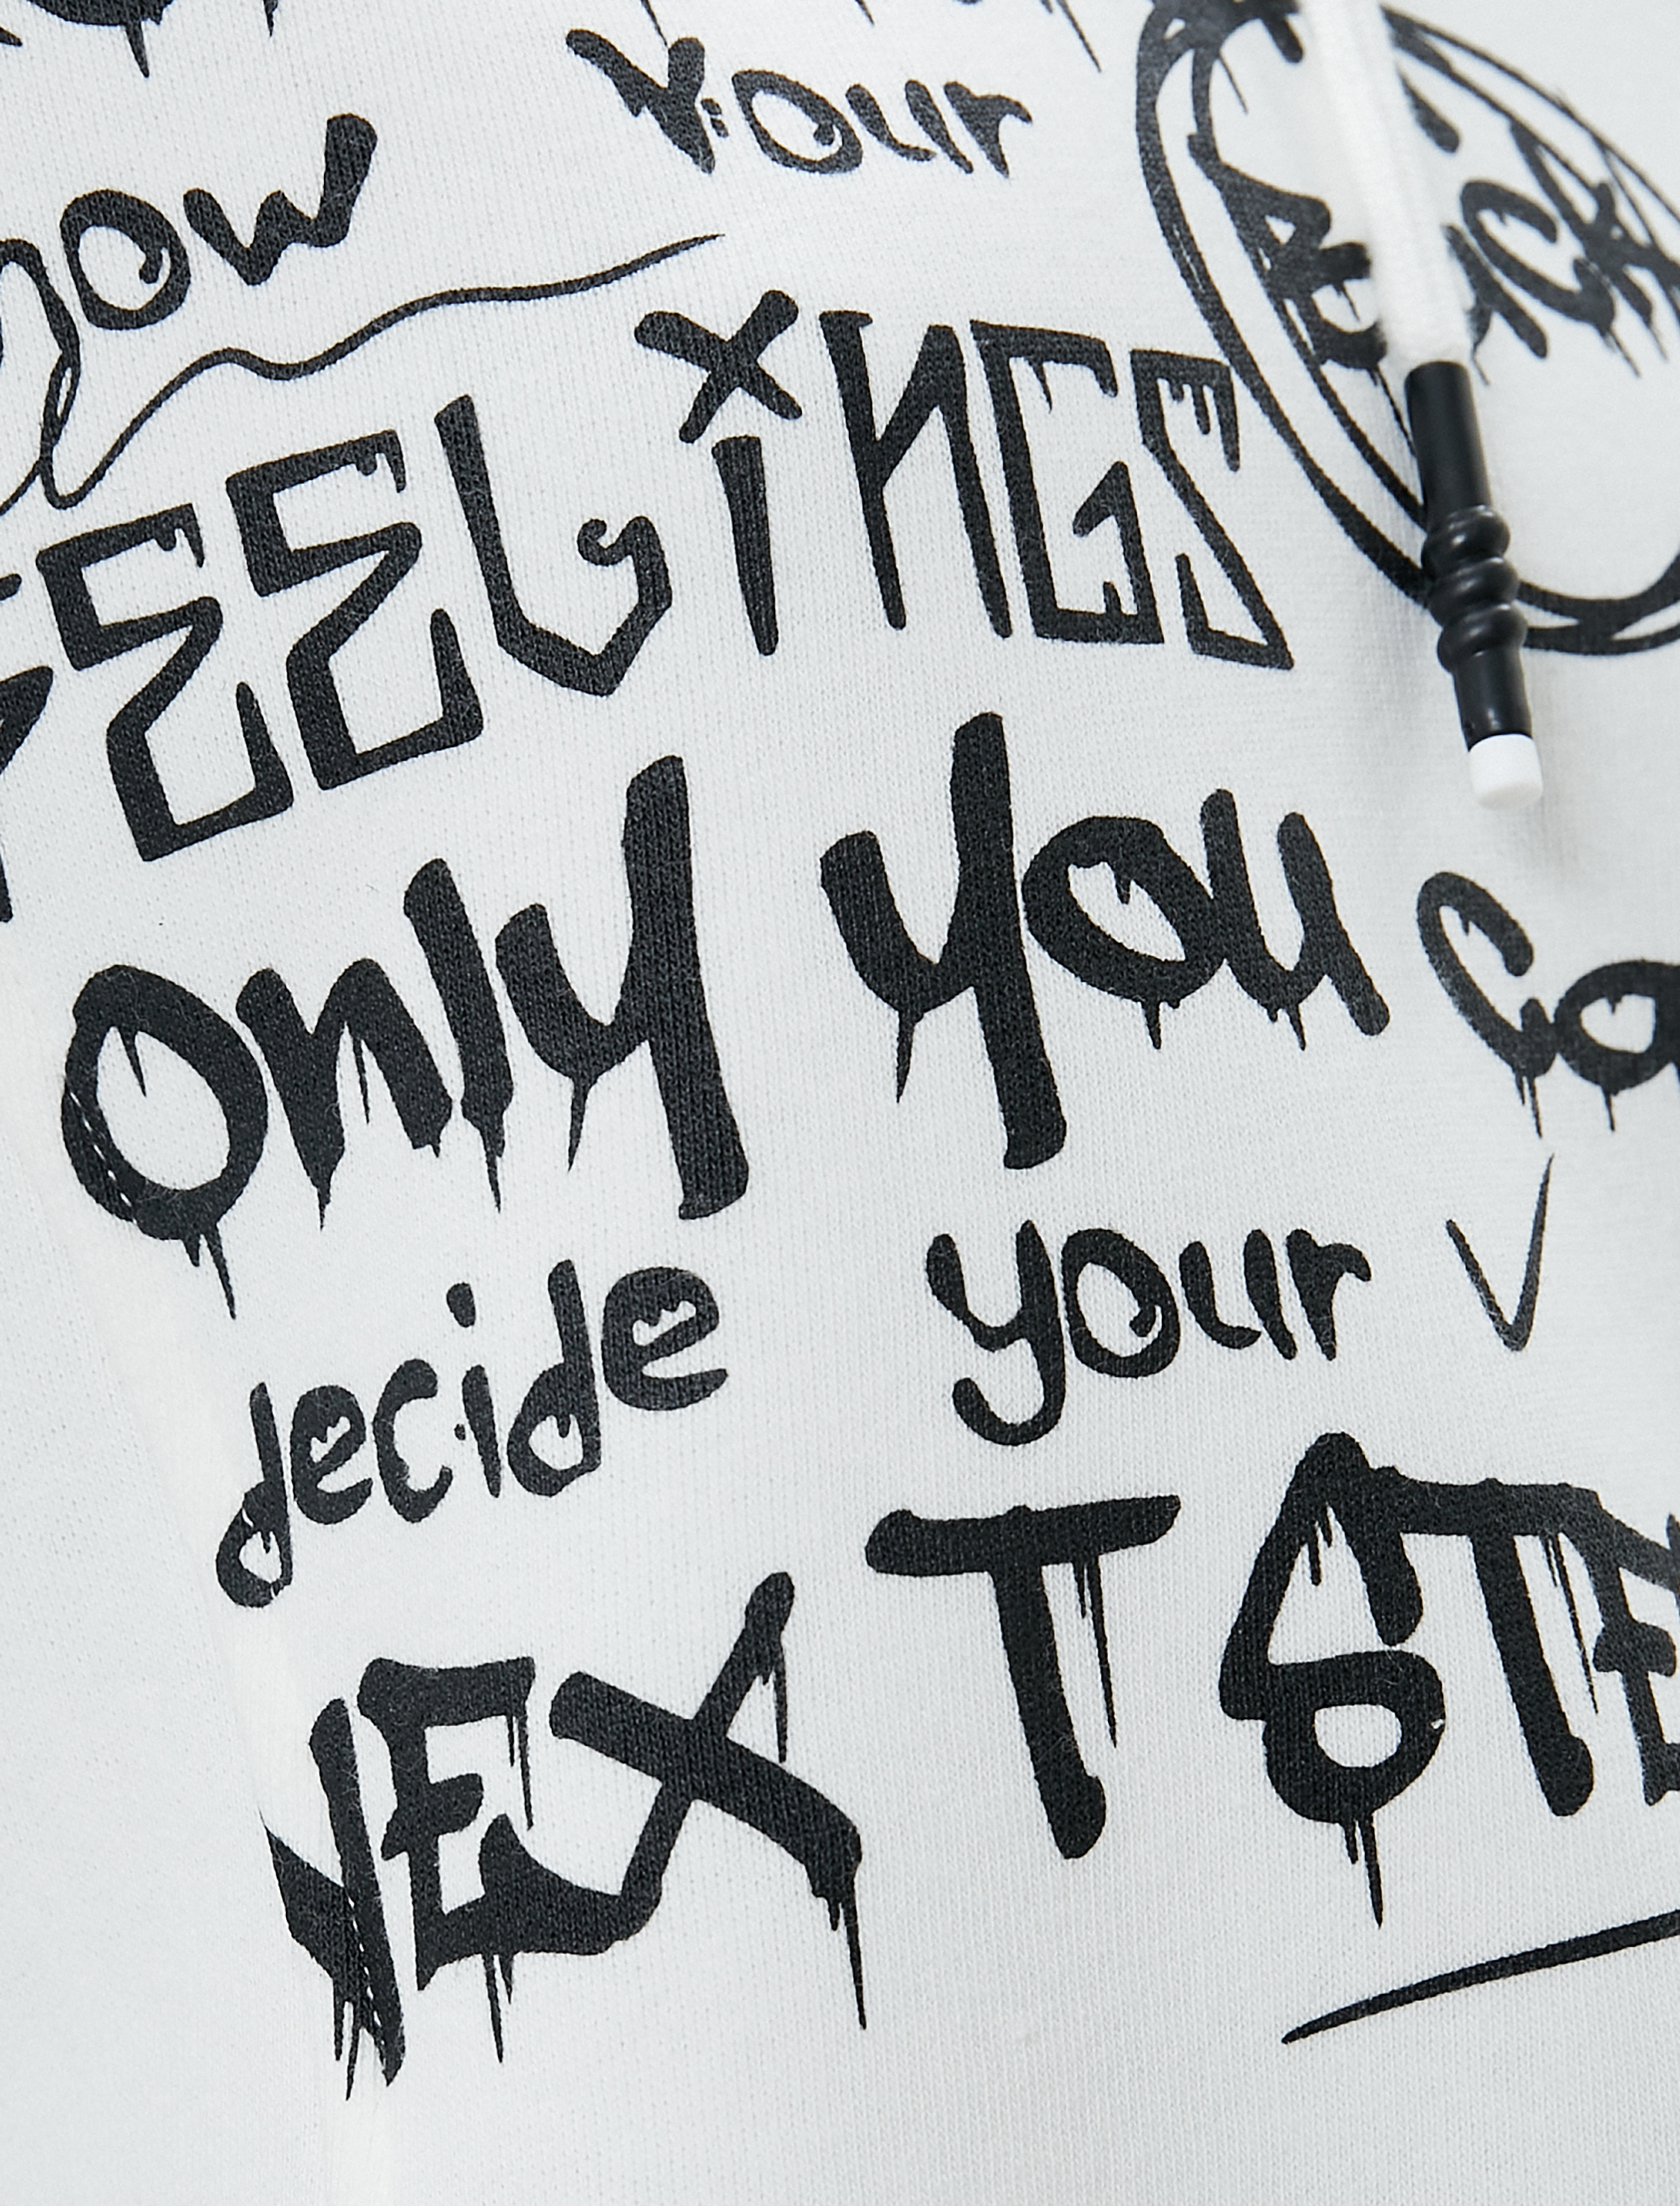 Your
FEELiNGS
Only you Ca
decide your
NEXT STE